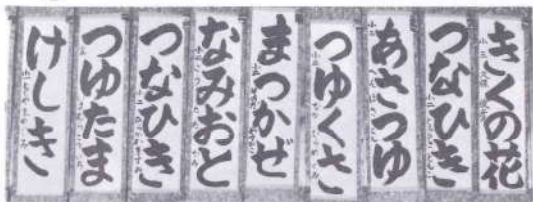 きくの花
つなひき
あさつゆ
つゆくさ
まつかぜ
なみおと
つなひき
つゆたま
けしき